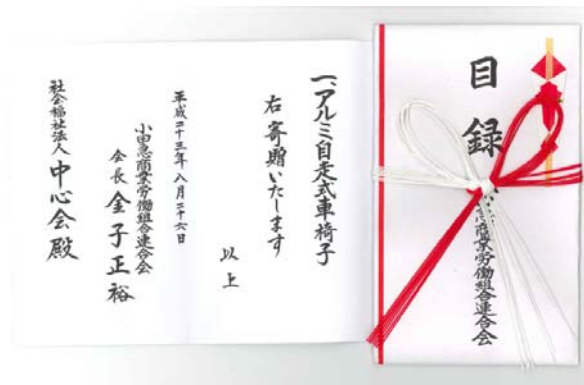 目録
急商業労働組合連合会
一、アルミ自走式車椅子
右寄贈いたします
以上
平成二十三年八月二十六日
小田急商業労働組合連合会
会長 金子正裕
社会福祉法人 中心会殿